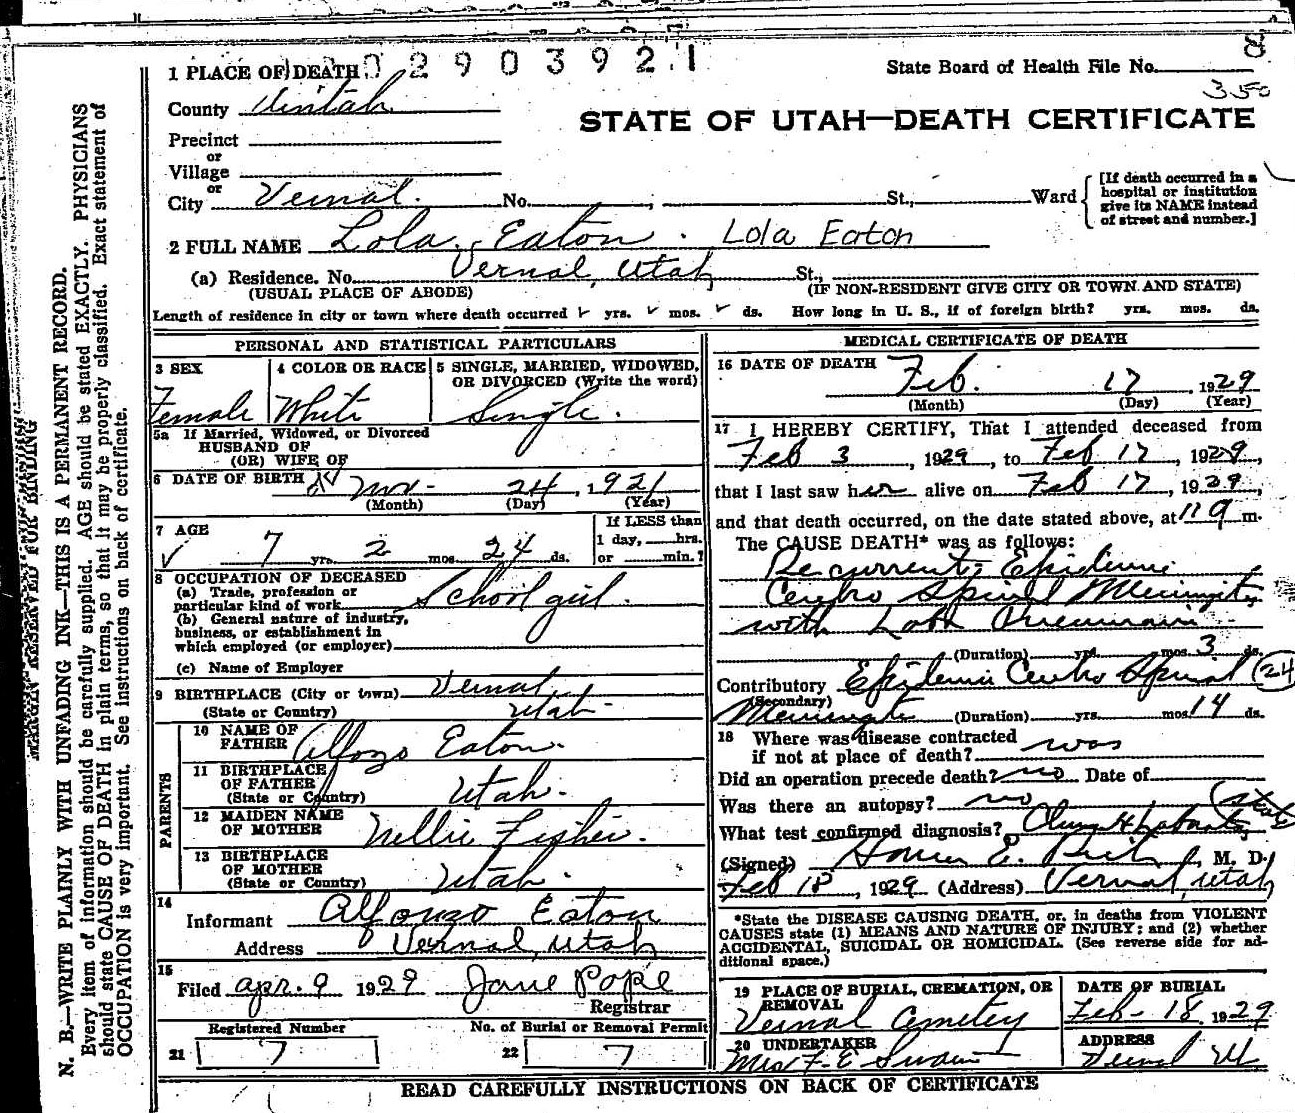 2903921
State Board of Health File No.
8
350
1 PLACE OF DEATH
County Uintah
STATE OF UTAH—DEATH CERTIFICATE
Precinct
or
Village
or
City Vernal. No. ; St., Ward
[If death occurred in a hospital or institution give its NAME instead of street and number.]
2 FULL NAME Lola Eaton. Lola Eaton
(a) Residence. No. Vernal, Utah St.,
(USUAL PLACE OF ABODE) (IF NON-RESIDENT GIVE CITY OR TOWN AND STATE)
Length of residence in city or town where death occurred yrs. mos. ds. How long in U. S., if of foreign birth? yrs. mos. ds.
PERSONAL AND STATISTICAL PARTICULARS
3 SEX
Female
4 COLOR OR RACE
White
5 SINGLE, MARRIED, WIDOWED, OR DIVORCED (Write the word)
Single.
5a If Married, Widowed, or Divorced
HUSBAND OF
(OR) WIFE OF
6 DATE OF BIRTH Nov- 24, 1921
(Month) (Day) (Year)
7 AGE
7 yrs. 2 mos. 24 ds.
If LESS than
1 day, hrs.
or min.?
8 OCCUPATION OF DECEASED
(a) Trade, profession or
particular kind of work School girl.
(b) General nature of industry,
business, or establishment in
which employed (or employer)
(c) Name of Employer
9 BIRTHPLACE (City or town) Vernal
(State or Country) Utah-
PARENTS
10 NAME OF
FATHER Alfozo Eaton.
11 BIRTHPLACE
OF FATHER
(State or Country) Utah.
12 MAIDEN NAME
OF MOTHER Nellie Fisher.
13 BIRTHPLACE
OF MOTHER
(State or Country) Utah.
14
Informant Alfonzo Eaton
Address Vernal, Utah
15
Filed Apr. 9 1929 Jane Pope
Registrar
Registered Number No. of Burial or Removal Permit
21 7 22 7
MEDICAL CERTIFICATE OF DEATH
16 DATE OF DEATH Feb. 17, 1929
(Month) (Day) (Year)
17 I HEREBY CERTIFY, That I attended deceased from
Feb 3, 1929, to Feb 17, 1929,
that I last saw her alive on Feb 17, 1929,
and that death occurred, on the date stated above, at m.
The CAUSE DEATH* was as follows:
Recurrent Epidemic
Cerebro Spinal Meningitis
with Lobar Pneumonia
(Duration) yrs. mos. 3 ds.
Contributory Epidemic Cerebro Spinal (24)
(Secondary)
Meningitis (Duration) yrs. mos. 14 ds.
18 Where was disease contracted
if not at place of death? was
Did an operation precede death? no Date of
Was there an autopsy? no
What test confirmed diagnosis?
(Signed) Homer E. , M. D.
Feb 18, 1929 (Address) Vernal, Utah
*State the DISEASE CAUSING DEATH, or, in deaths from VIOLENT
CAUSES state (1) MEANS AND NATURE OF INJURY; and (2) whether
ACCIDENTAL, SUICIDAL OR HOMICIDAL. (See reverse side for ad-
ditional space.)
19 PLACE OF BURIAL, CREMATION, OR
REMOVAL
Vernal Cemetery
DATE OF BURIAL
Feb- 18 1929
20 UNDERTAKER
Mrs F. E Swain
ADDRESS
Vernal Ut.
READ CAREFULLY INSTRUCTIONS ON BACK OF CERTIFICATE
MARGIN RESERVED FOR BINDING
N. B.—WRITE PLAINLY WITH UNFADING INK—THIS IS A PERMANENT RECORD.
Every item of information should be carefully supplied. AGE should be stated EXACTLY. PHYSICIANS
should state CAUSE OF DEATH in plain terms, so that it may be properly classified. Exact statement of
OCCUPATION is very important. See instructions on back of certificate.